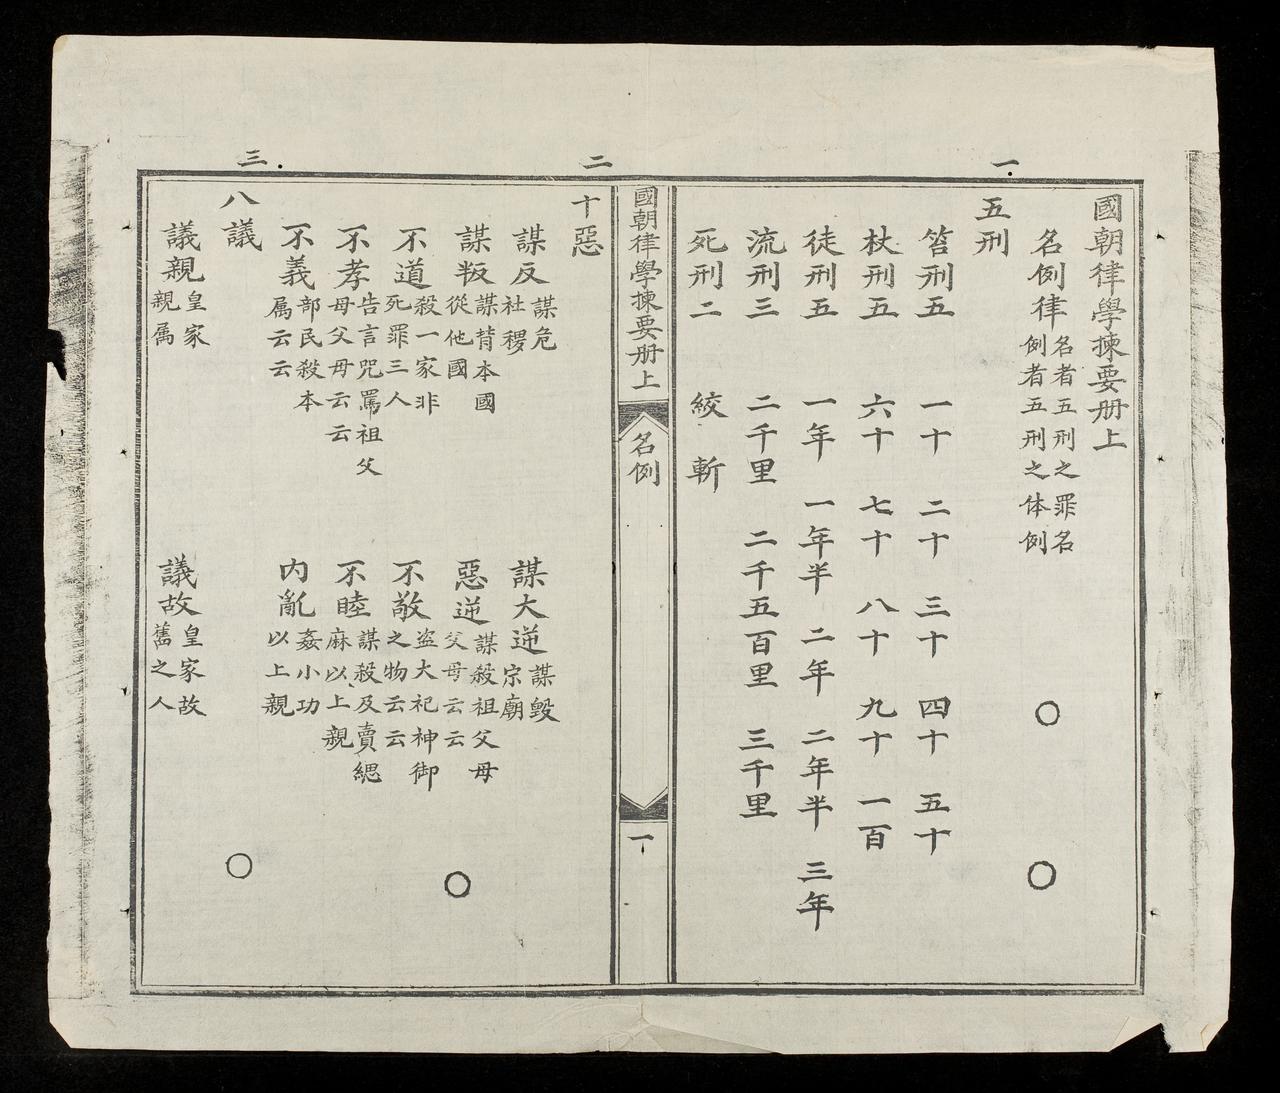 一
國朝律學揀要册上
名例律 名者五刑之罪名
例者五刑之体例
五刑
笞刑五 一十 二十 三十 四十 五十
杖刑五 六十 七十 八十 九十 一百
徒刑五 一年 一年半 二年 二年半 三年
流刑三 二千里 二千五百里 三千里
死刑二 絞 斬
二
國朝律學揀要册上 名例 一
十惡
謀反 謀危
社稷
謀大逆 謀毀
宗廟
謀叛 謀背本國
從他國
惡逆 謀殺祖父母
父母云云
不道 殺一家非
死罪三人
不敬 盗大祀神御
之物云云
不孝 告言咒罵祖父
母父母云云
不睦 謀殺及賣緦
麻以上親
不義 部民殺本
属云云
内亂 姦小功
以上親
三
八議
議親 皇家
親属
議故 皇家故
舊之人